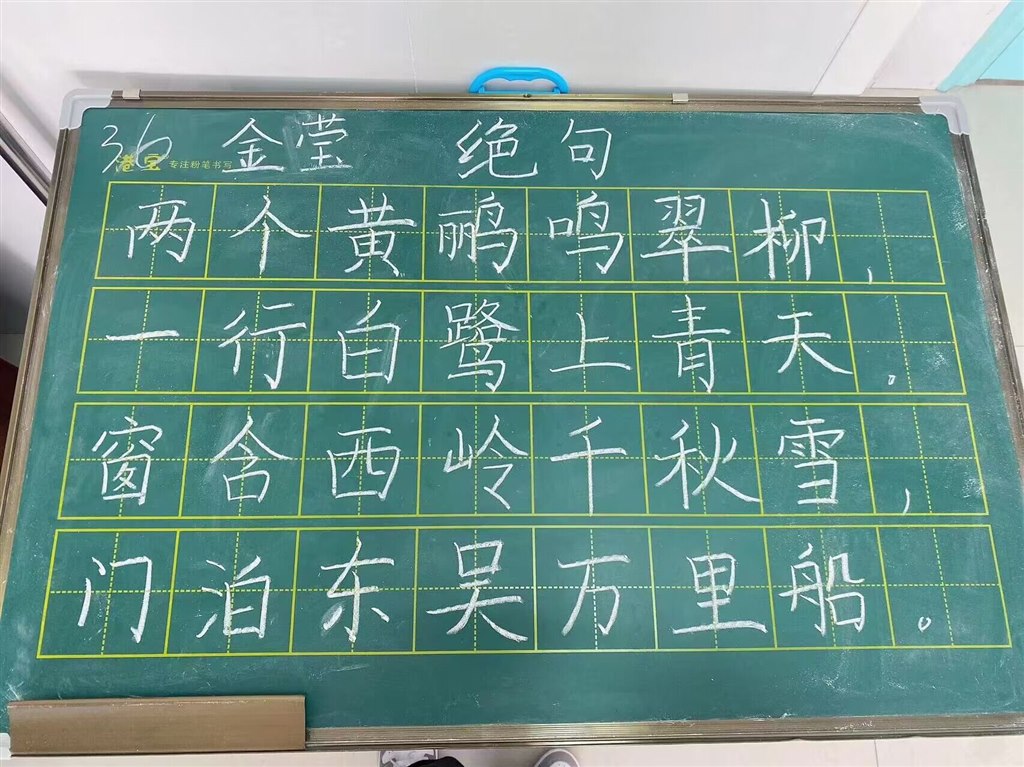 36 金莹 绝句
港宝 专注粉笔书写
两个黄鹂鸣翠柳,
一行白鹭上青天。
窗含西岭千秋雪,
门泊东吴万里船。